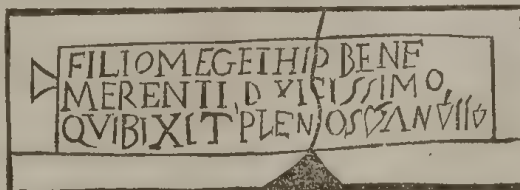 FILIO MEGETHIO BENE
MERENTI DVLCISSIMO
QVI BIXIT PLENOS ANVS II